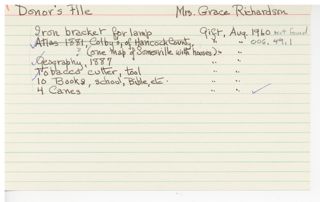 Donor's File Mrs. Grace Richardson
Iron bracket for lamp Gift, Aug. 1960 not found
Atlas 1881, Colby's, of Hancock County, " " 006.49.1
(one map of Somesville with houses) " "
Geography, 1887 " "
Tobacco cutter, tool " "
10 Books, school, Bible, etc. " "
4 Canes " "